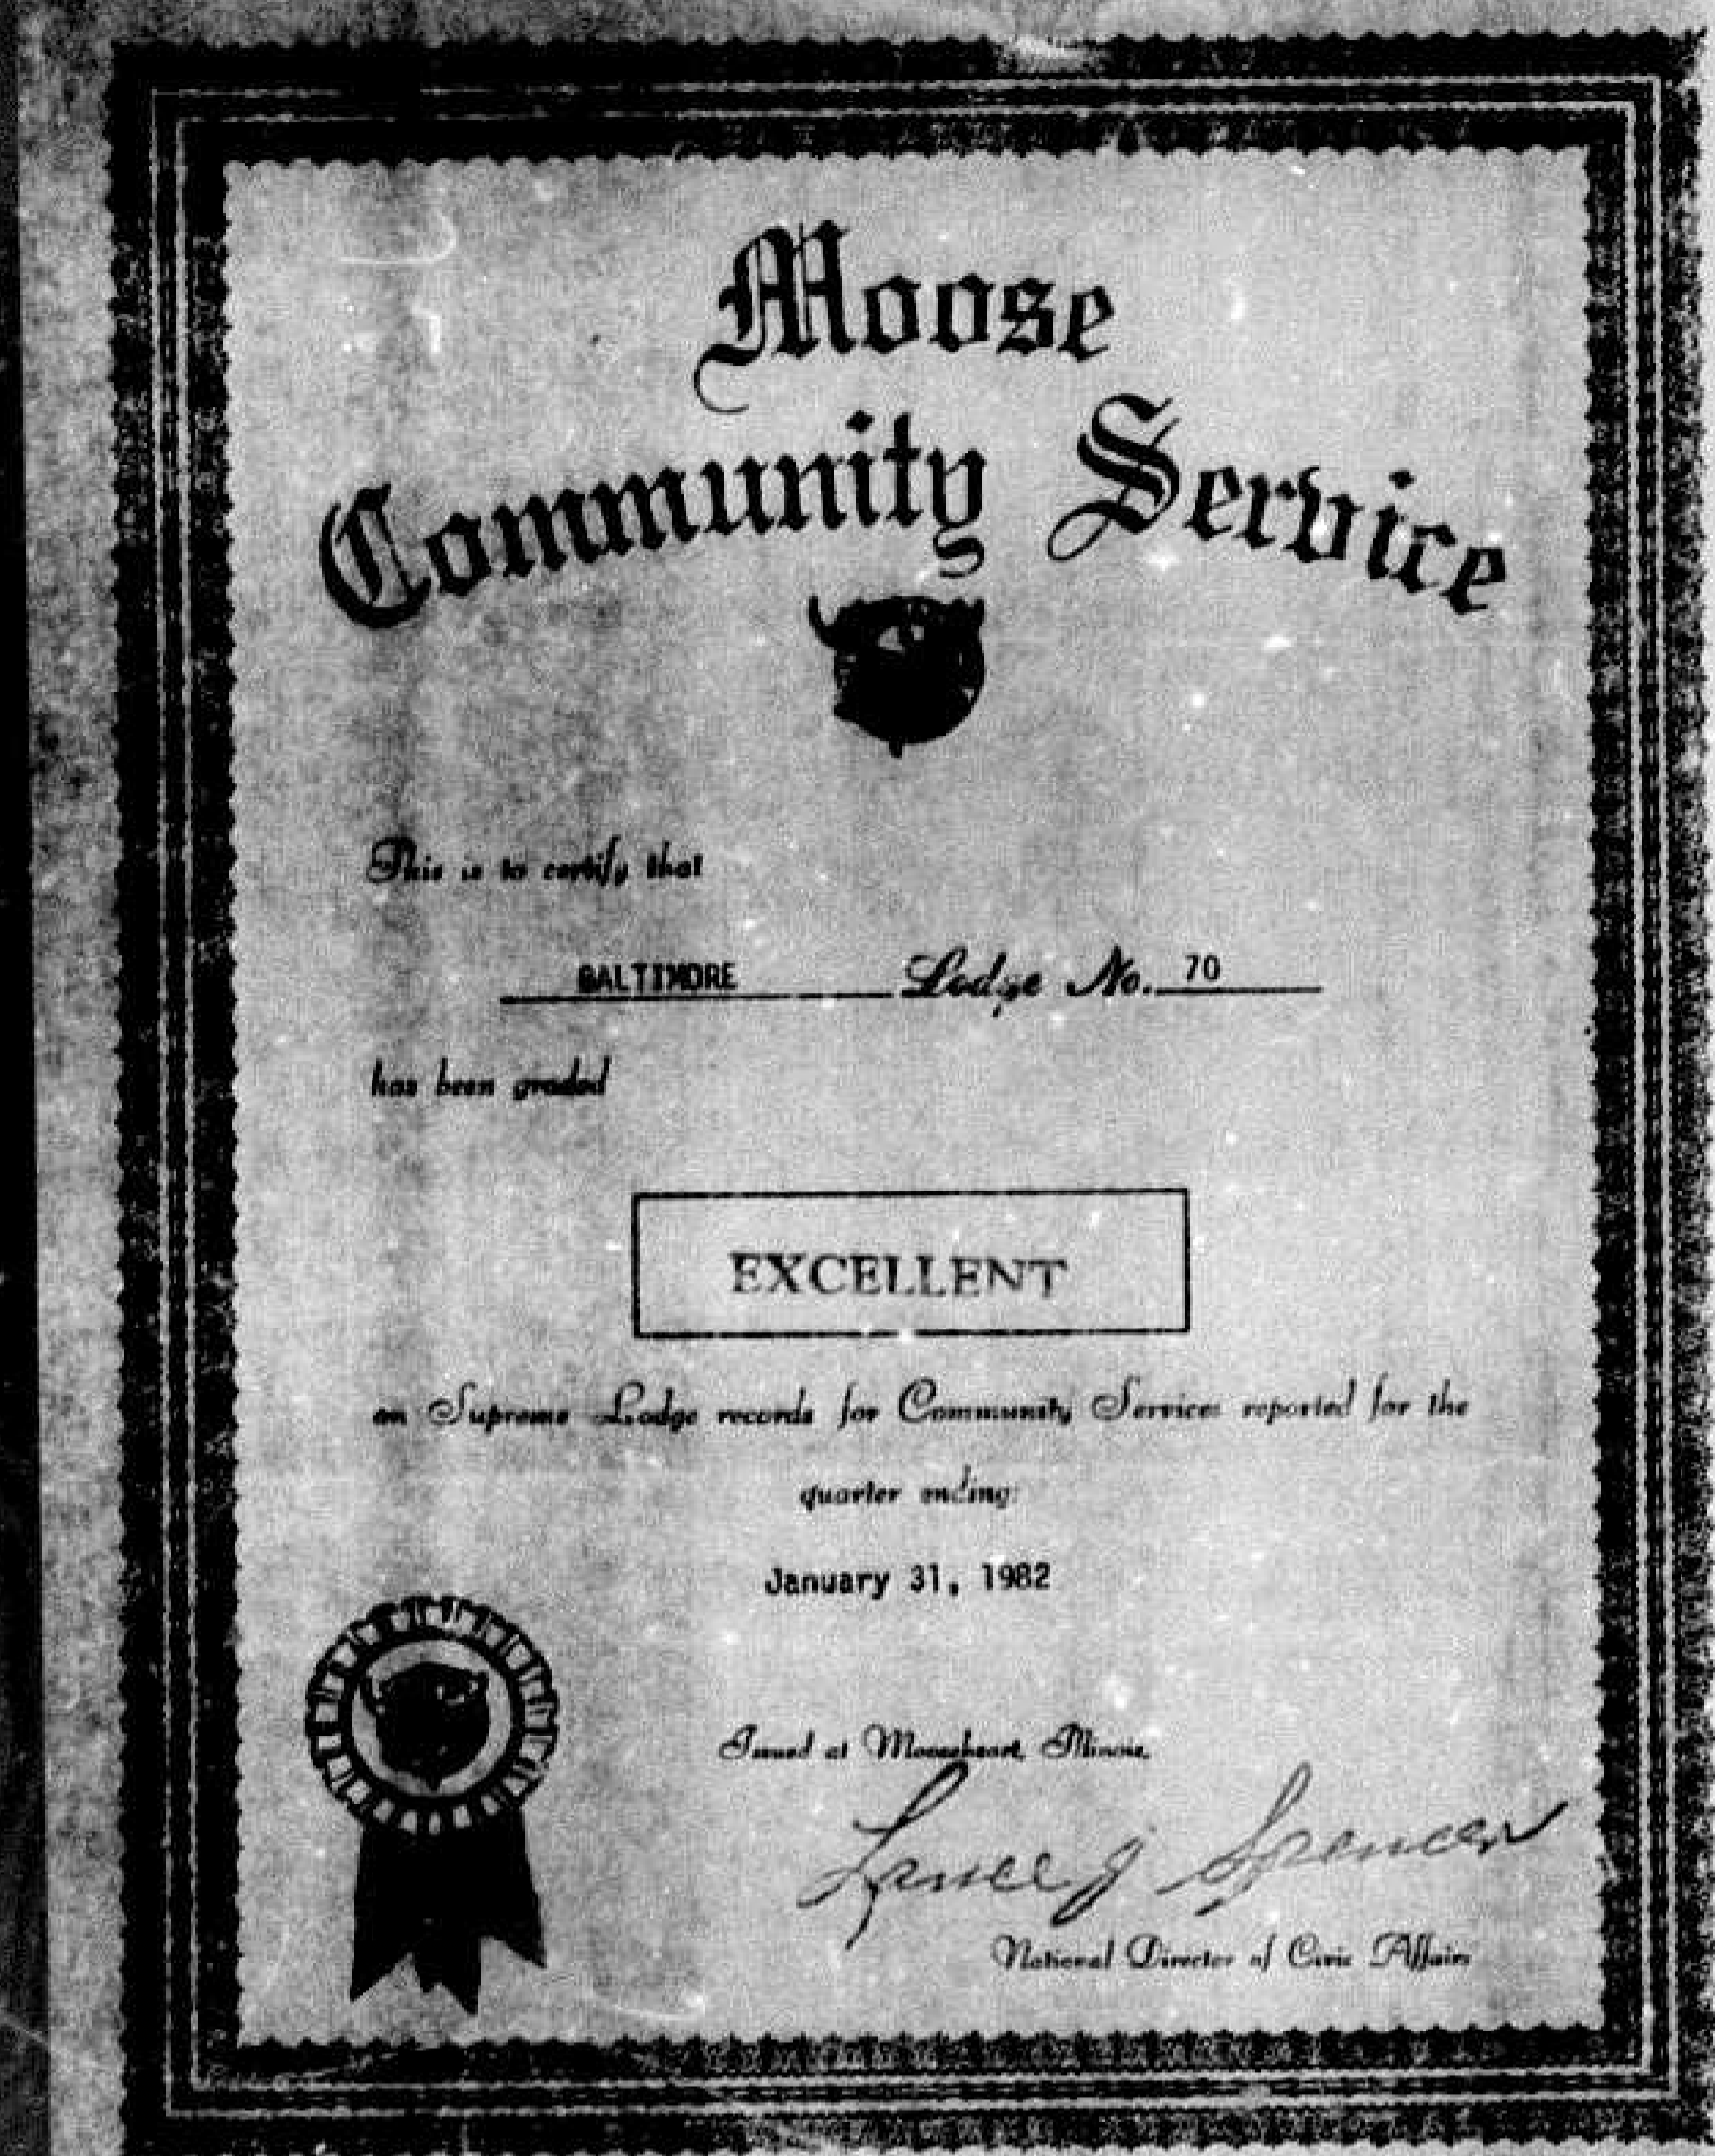 Moose
Community Service
This is to certify that
BALTIMORE Lodge No. 70
has been graded
EXCELLENT
on Supreme Lodge records for Community Services reported for the
quarter ending:
January 31, 1982
Issued at Mooseheart, Illinois.
Lance J Spencer
National Director of Civic Affairs